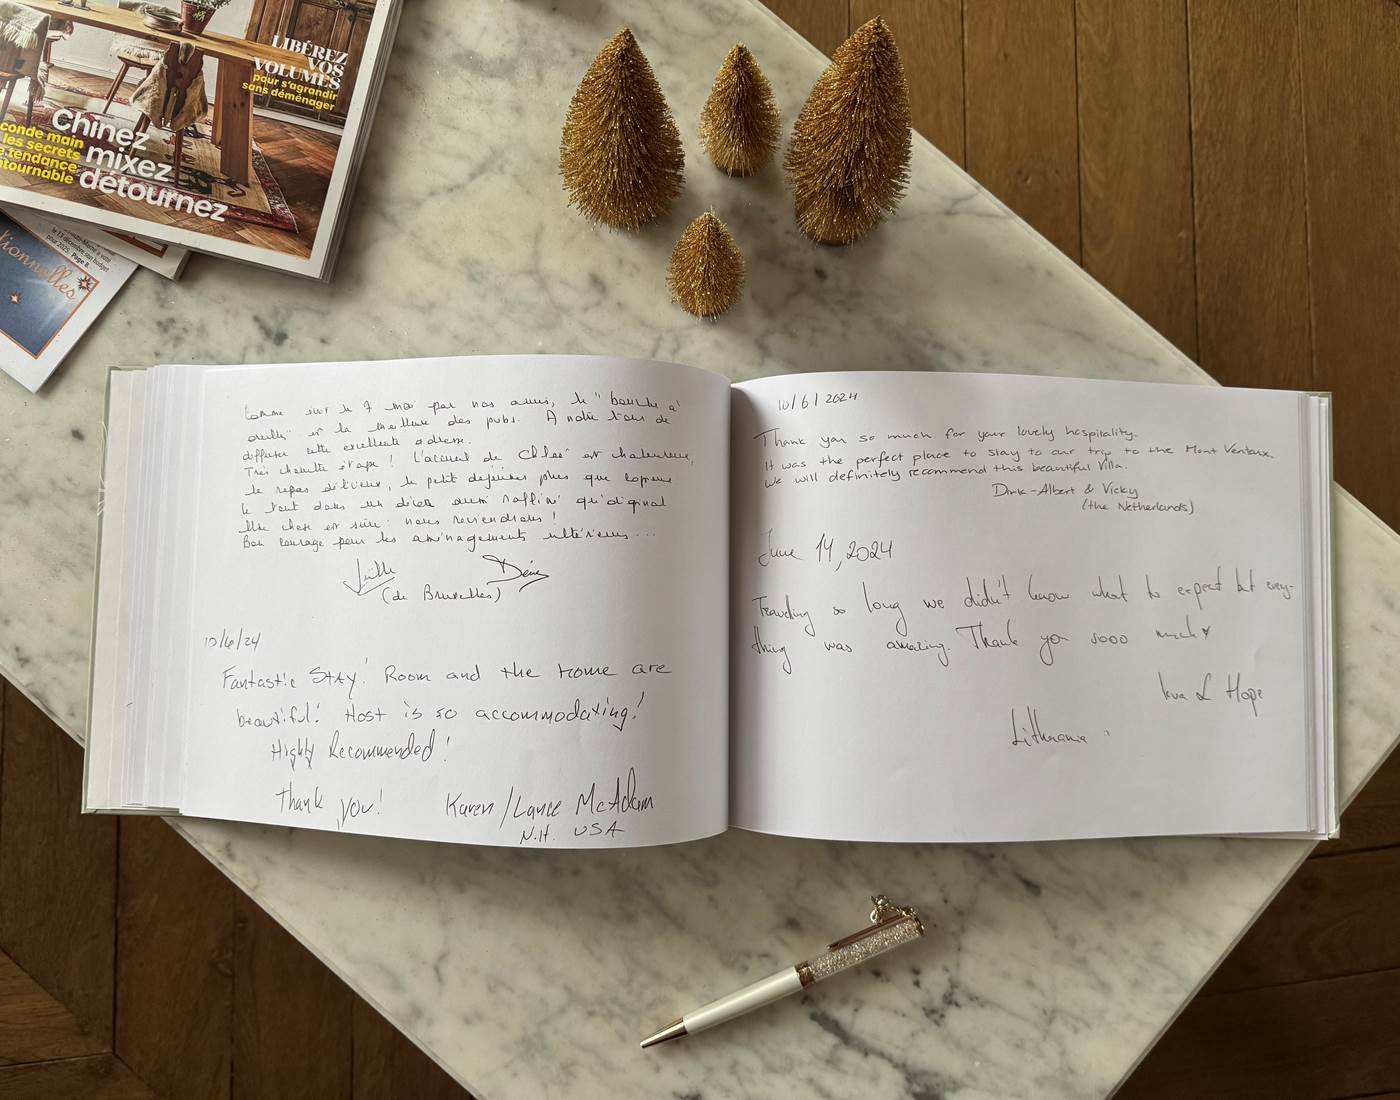 LIBÉREZ
VOS
VOLUMES
pour s'agrandir
sans déménager
Chinez
mixez
détournez
conde main
les secrets
e tendance
ntournable
le 13 décembre, son budget
pour 2025. Page 8.
tionnelles
comme sur le 7 mai par nos amis, le "bouche à
oreille" est la meilleure des pubs. A notre tour de
diffuser cette excellente adresse.
Très chouette étape ! L'accueil de Chloé est chaleureux,
le repas délicieux, le petit déjeuner plus que copieux
le tout dans un décor aussi raffiné qu'original
Une chose est sûre : nous reviendrons !
Bon courage pour les aménagements ultérieurs...
(de Bruxelles)
10/6/24
Fantastic Stay! Room and the Home are
beautiful! Host is so accommodating!
Highly Recommended!
Thank you! Karen/Lance McAdam
N.H. USA
10/6/2024
Thank you so much for your lovely hospitality.
It was the perfect place to stay to our trip to the Mont Ventoux.
We will definitely recommend this beautiful Villa.
Dirk-Albert & Vicky
(the Netherlands)
June 14, 2024
Traveling so long we didn't know what to expect but every-
thing was amazing. Thank you sooo much
& Hope
Lithuania